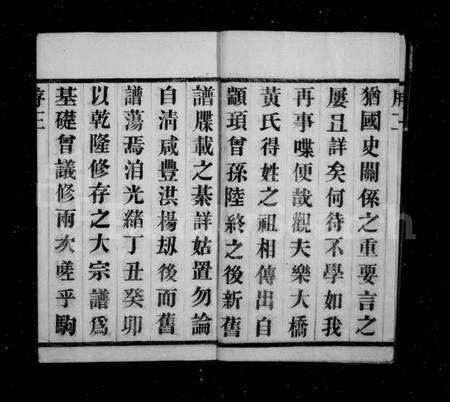 序二
猶國史關係之重要言之
屡且詳矣何待不學如我
再事喋便哉觀夫樂大橋
黃氏得姓之祖相傳出自
顓頊曾孫陸終之後新舊
譜牒載之綦詳姑置勿論
自淸咸豐洪楊刼後而舊
譜蕩焉洎光緒丁丑癸卯
以乾隆修存之大宗譜爲
基礎曾議修兩次嗟乎駒
序三